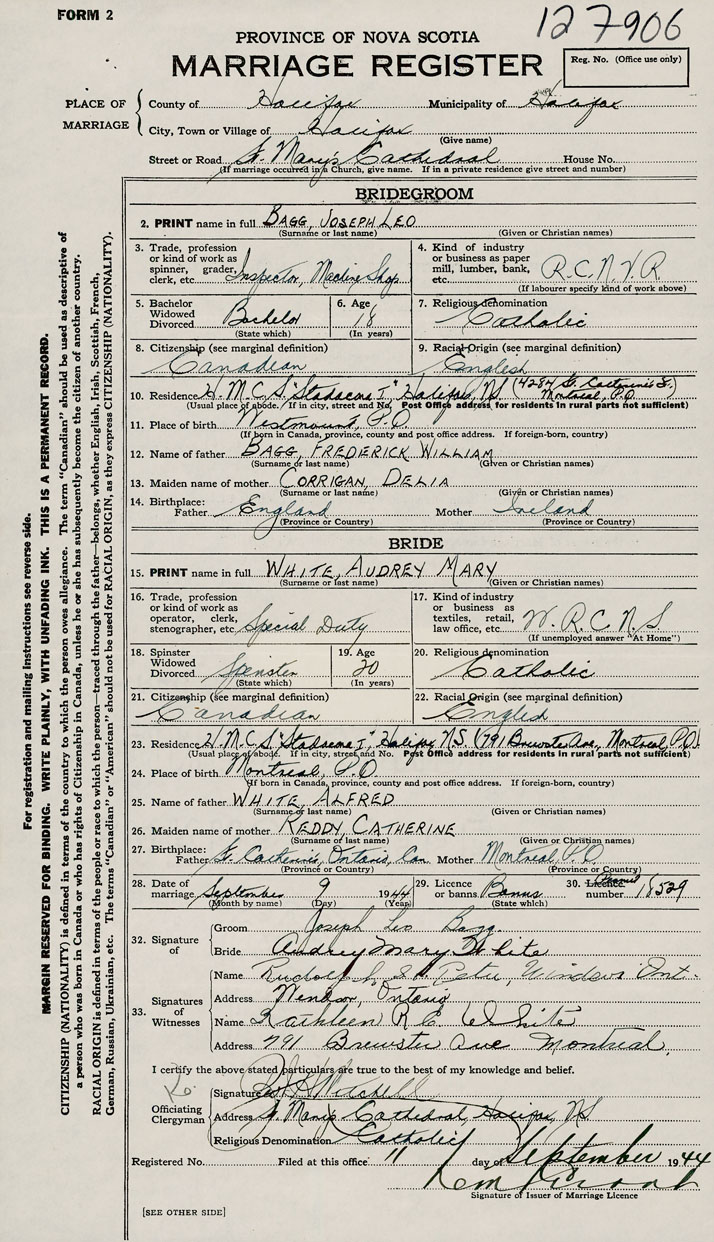 FORM 2
127906
PROVINCE OF NOVA SCOTIA
MARRIAGE REGISTER
Reg. No. (Office use only)
PLACE OF MARRIAGE
County of Halifax Municipality of Halifax
City, Town or Village of Halifax
(Give name)
Street or Road St. Mary's Cathedral House No.
(If marriage occurred in a Church, give name. If in a private residence give street and number)
BRIDEGROOM
2. PRINT name in full BAGG, JOSEPH LEO
(Surname or last name) (Given or Christian names)
3. Trade, profession or kind of work as spinner, grader, clerk, etc. Inspector, Machine Shop
4. Kind of industry or business as paper mill, lumber, bank, etc. R.C.N.V.R.
(If labourer specify kind of work above)
5. Bachelor Widowed Divorced Bachelor
(State which)
6. Age 18
(In years)
7. Religious denomination Catholic
8. Citizenship (see marginal definition) Canadian
9. Racial Origin (see marginal definition) English
10. Residence H.M.C.S. "Stadacona I" Halifax, N.S. (4284 St. Catherine St. Montreal, P.Q.
(Usual place of abode. If in city, street and No. Post Office address for residents in rural parts not sufficient)
11. Place of birth Westmount P.Q.
(If born in Canada, province, county and post office address. If foreign-born, country)
12. Name of father BAGG, FREDERICK WILLIAM
(Surname or last name) (Given or Christian names)
13. Maiden name of mother CORRIGAN, DELIA
(Surname or last name) (Given or Christian names)
14. Birthplace: Father England Mother Ireland
(Province or Country) (Province or Country)
BRIDE
15. PRINT name in full WHITE, AUDREY MARY
(Surname or last name) (Given or Christian names)
16. Trade, profession or kind of work as operator, clerk, stenographer, etc. Special Duty
17. Kind of industry or business as textiles, retail, law office, etc. W.R.C.N.S
(If unemployed answer "At Home")
18. Spinster Widowed Divorced Spinster
(State which)
19. Age 20
(In years)
20. Religious denomination Catholic
21. Citizenship (see marginal definition) Canadian
22. Racial Origin (see marginal definition) English
23. Residence H.M.C.S. "Stadacona I", Halifax N.S. (791 Brewster Ave., Montreal, P.Q.)
(Usual place of abode. If in city, street and No. Post Office address for residents in rural parts not sufficient)
24. Place of birth Montreal, P.Q.
(If born in Canada, province, county and post office address. If foreign-born, country)
25. Name of father WHITE, ALFRED
(Surname or last name) (Given or Christian names)
26. Maiden name of mother REDDY, CATHERINE
(Surname or last name) (Given or Christian names)
27. Birthplace: Father St. Catherines, Ontario, Can. Mother Montreal, P.Q.
(Province or Country) (Province or Country)
28. Date of marriage September 9 1944
(Month by name) (Day) (Year)
29. Licence or banns Banns
(State which)
30. Licence number 18529
32. Signature of
Groom Joseph Leo Bagg
Bride Audrey Mary White
33. Signatures of Witnesses
Name Rudolph Peter, Windsor Ont.
Address Windsor, Ontario
Name Kathleen R.C. White
Address 791 Brewster Ave Montreal.
I certify the above stated particulars are true to the best of my knowledge and belief.
Officiating Clergyman
Signature Mitchell
Address St. Mary's Cathedral, Halifax, NS
Religious Denomination Catholic
Registered No. Filed at this office 11 day of September 1944
Signature of Issuer of Marriage Licence
[SEE OTHER SIDE]
For registration and mailing instructions see reverse side.
MARGIN RESERVED FOR BINDING. WRITE PLAINLY, WITH UNFADING INK. THIS IS A PERMANENT RECORD.
CITIZENSHIP (NATIONALITY) is defined in terms of the country to which the person owes allegiance. The term "Canadian" should be used as descriptive of
a person who was born in Canada or who has rights of Citizenship in Canada, unless he or she has subsequently become the citizen of another country.
RACIAL ORIGIN is defined in terms of the people or race to which the person—traced through the father—belongs, whether English, Irish, Scottish, French,
German, Russian, Ukrainian, etc. The terms "Canadian" or "American" should not be used for RACIAL ORIGIN, as they express CITIZENSHIP (NATIONALITY).